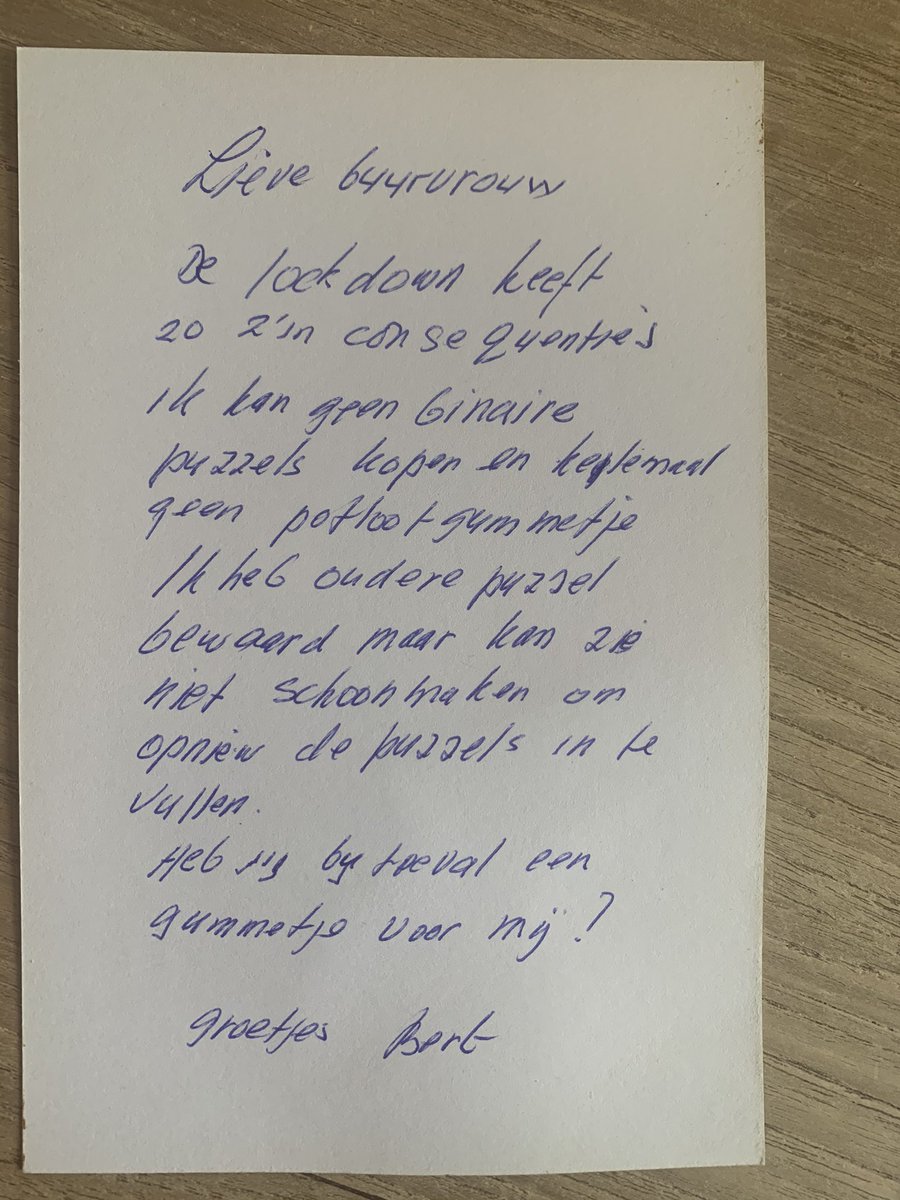 Lieve buurvrouw
De lockdown heeft
zo z'in consequentie's
ik kan geen binaire
puzzels kopen en helemaal
geen potlootgummetje
Ik heb oudere puzzel
bewaard maar kan zie
niet schoonmaken om
opniew de puzzels in te
vullen.
Heb jij by toeval een
gummetje voor mij?
groetjes Bert